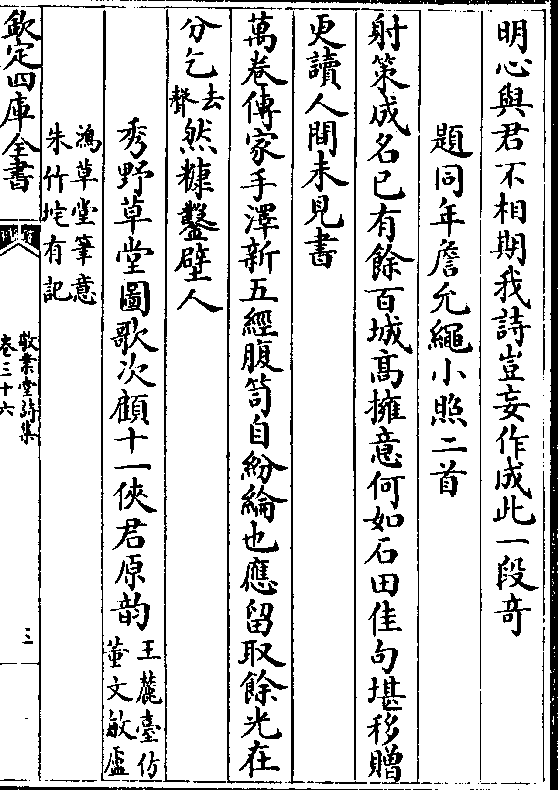 明心與君不相期我詩豈妄作成此一段奇
題同年詹允繩小照二首
射策成名已有餘百城高擁意何如石田佳句堪移贈
更讀人間未見書
萬卷傳家手澤新五經腹笥自紛綸也應留取餘光在
分乞去聲然糠鑿壁人
秀野草堂圖歌次顧十一俠君原韵王麓臺仿董文敏盧
鴻草堂筆意朱竹垞有記
欽定四庫全書
敬業堂詩集
卷三十六
三